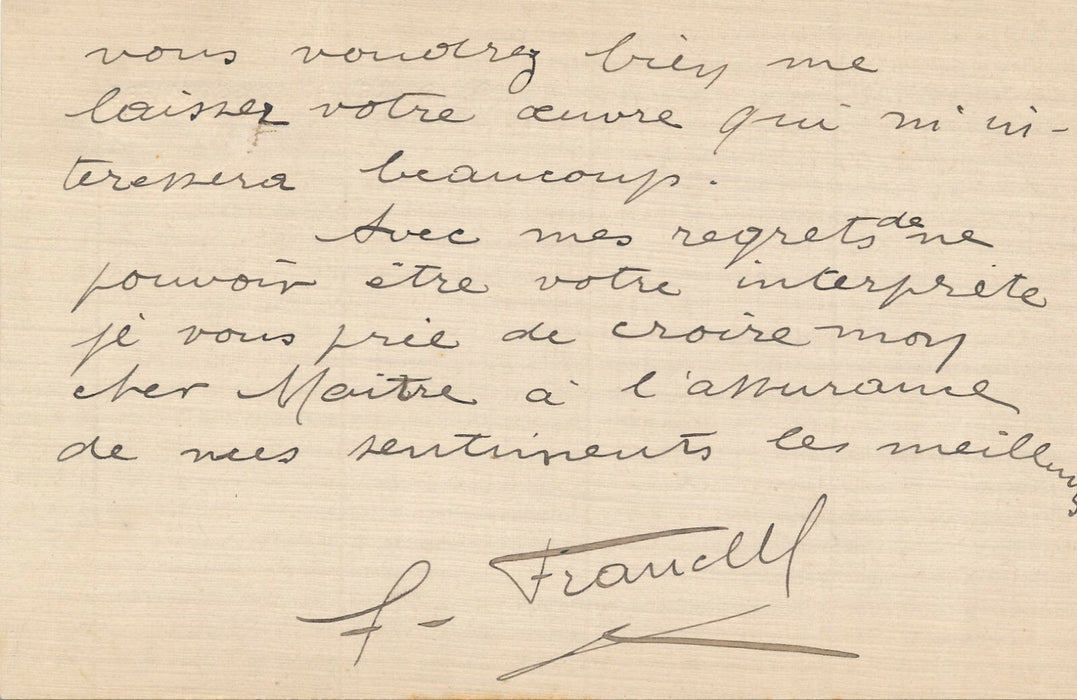 vous voudrez bien me
laisser votre œuvre qui m'in-
teressera beaucoup.
Avec mes regrets de ne
pouvoir être votre interprète
je vous prie de croire moy
cher Maître à l'assurance
de mes sentiments les meilleurs
F.